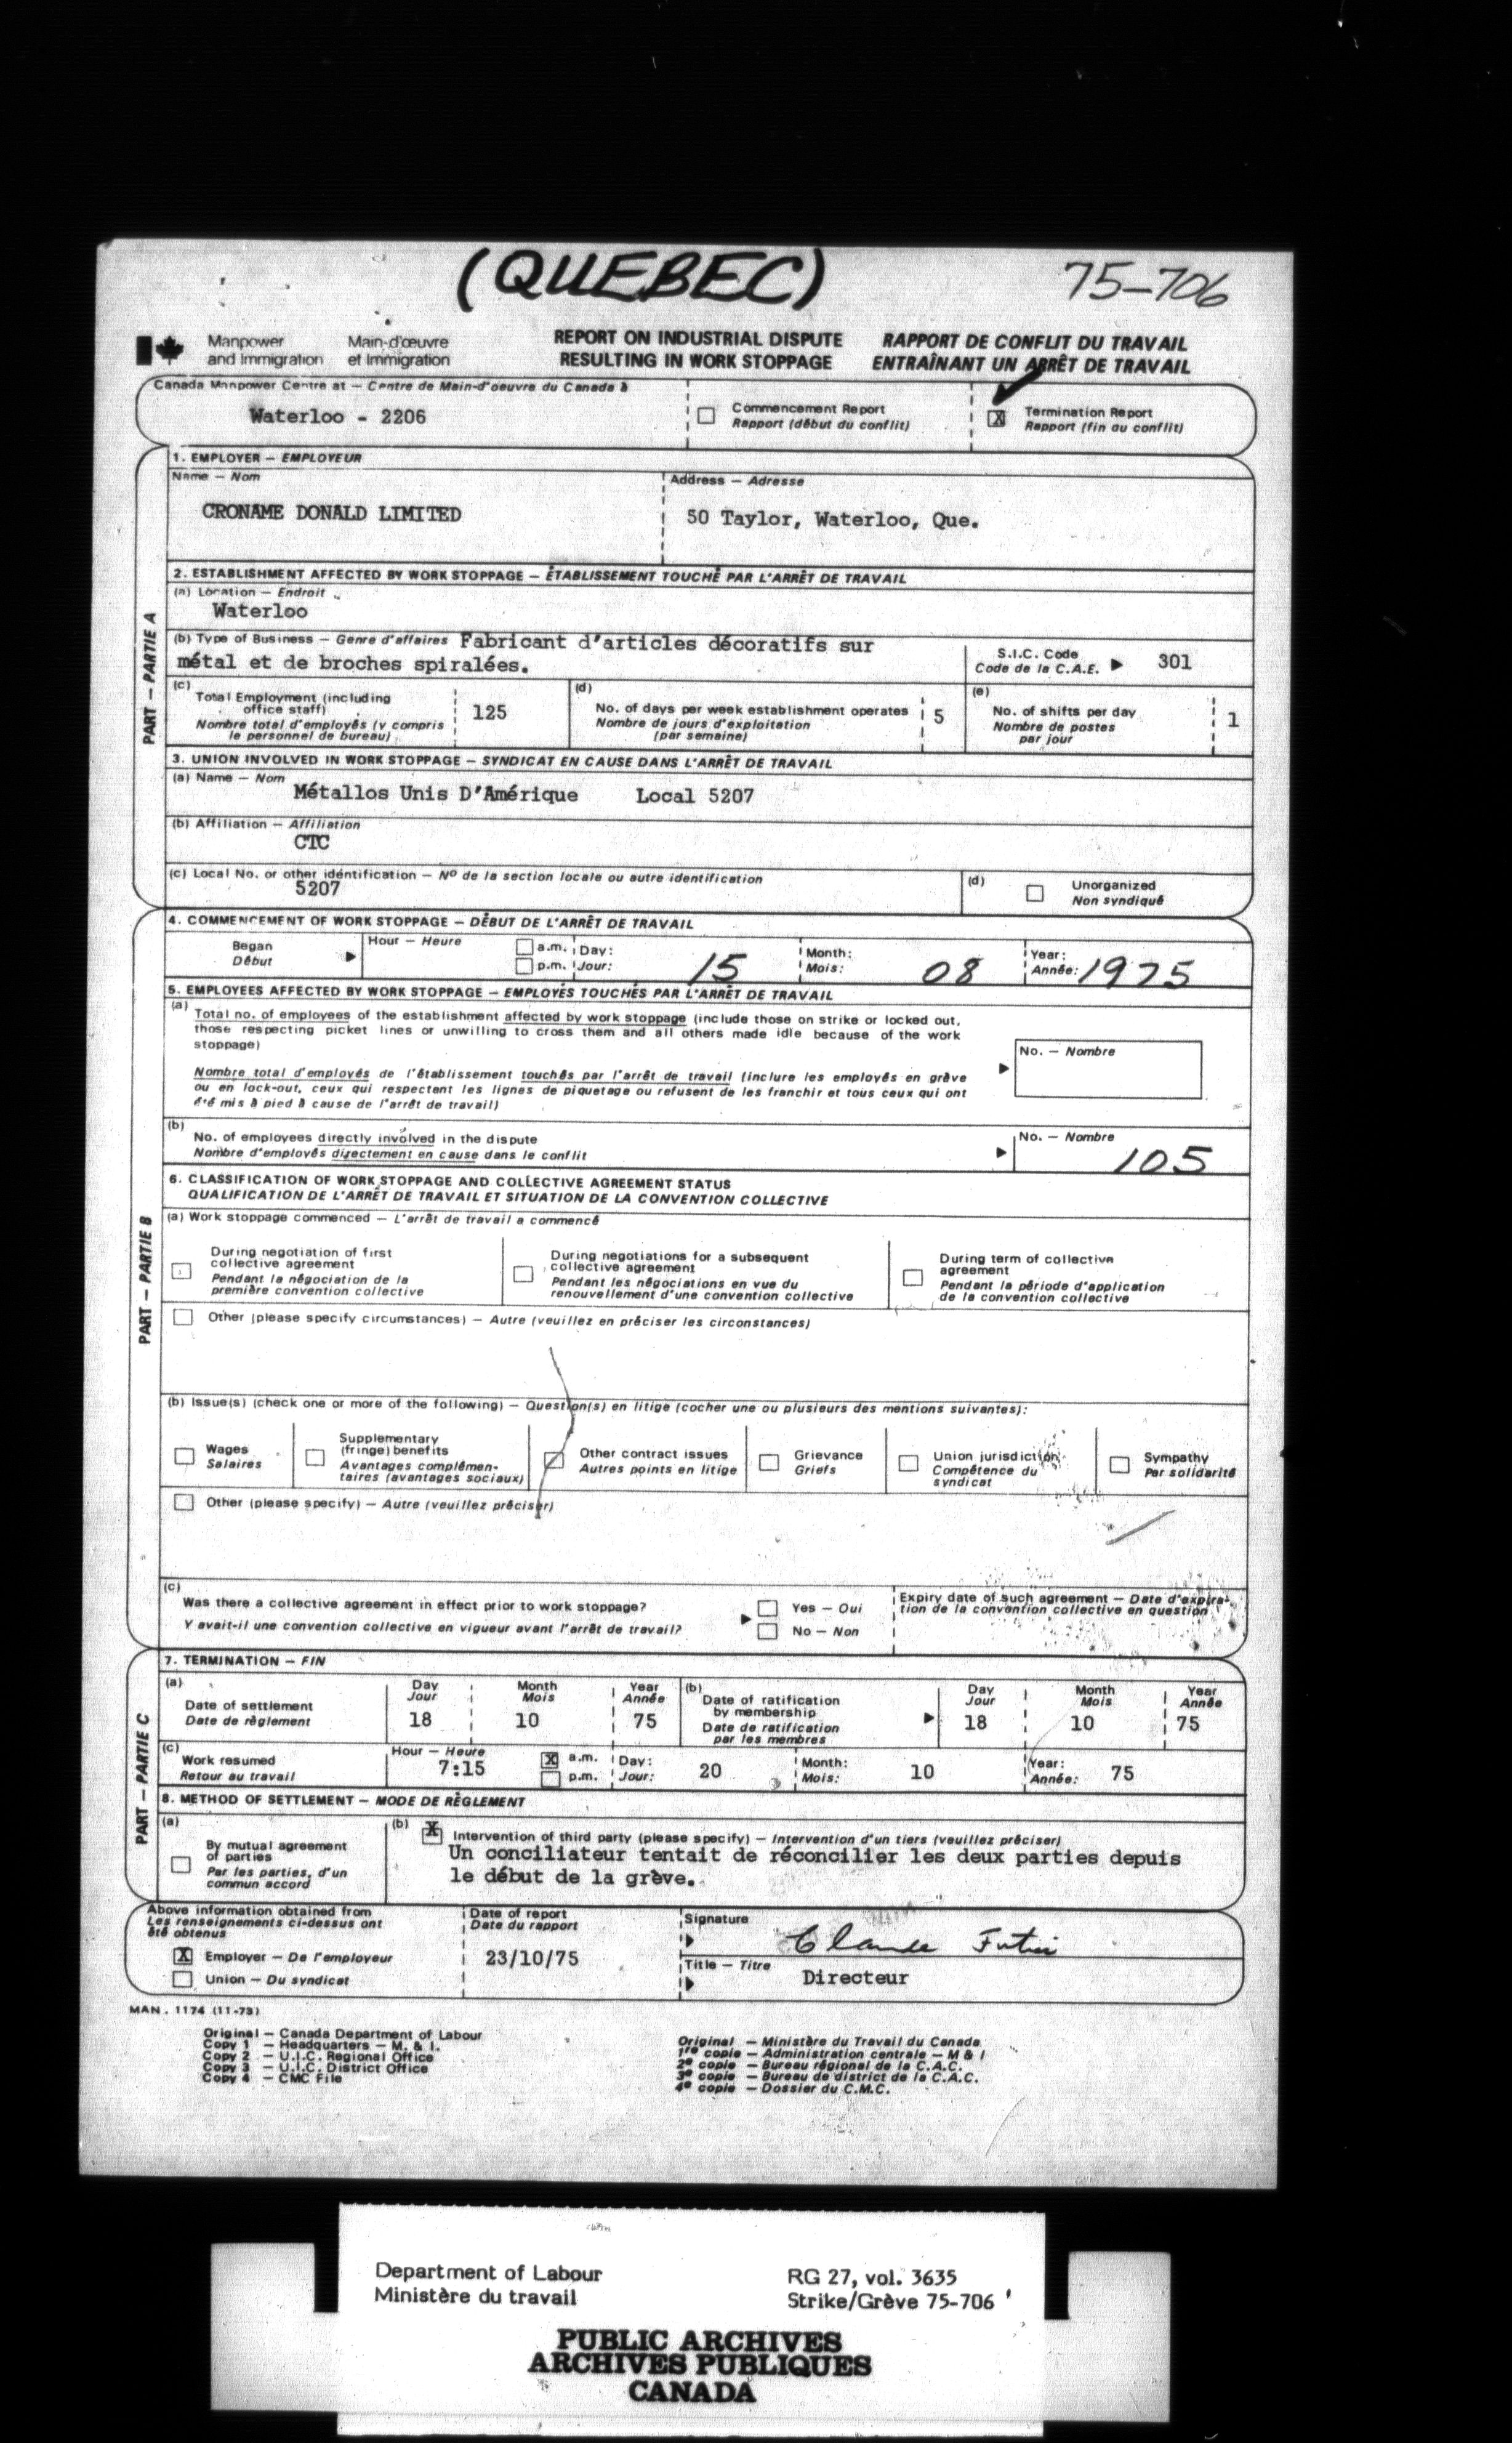 (QUEBEC)
75-706
Manpower and Immigration
Main-d'œuvre et Immigration
REPORT ON INDUSTRIAL DISPUTE RESULTING IN WORK STOPPAGE
RAPPORT DE CONFLIT DU TRAVAIL ENTRAÎNANT UN ARRÊT DE TRAVAIL
Canada Manpower Centre at — Centre de Main-d'oeuvre du Canada à
Waterloo - 2206
Commencement Report
Rapport (début du conflit)
X Termination Report
Rapport (fin du conflit)
PART — PARTIE A
1. EMPLOYER — EMPLOYEUR
Name — Nom
CRONAME DONALD LIMITED
Address — Adresse
50 Taylor, Waterloo, Que.
2. ESTABLISHMENT AFFECTED BY WORK STOPPAGE — ÉTABLISSEMENT TOUCHÉ PAR L'ARRÊT DE TRAVAIL
(a) Location — Endroit
Waterloo
(b) Type of Business — Genre d'affaires Fabricant d'articles décoratifs sur
métal et de broches spiralées.
S.I.C. Code
Code de la C.A.E.
301
(c) Total Employment (including
office staff)
Nombre total d'employés (y compris
le personnel de bureau)
125
(d)
No. of days per week establishment operates
Nombre de jours d'exploitation
(par semaine)
5
(e)
No. of shifts per day
Nombre de postes
par jour
1
3. UNION INVOLVED IN WORK STOPPAGE — SYNDICAT EN CAUSE DANS L'ARRÊT DE TRAVAIL
(a) Name — Nom
Métallos Unis D'Amérique Local 5207
(b) Affiliation — Affiliation
CTC
(c) Local No. or other identification — Nº de la section locale ou autre identification
5207
(d)
Unorganized
Non syndiqué
PART — PARTIE B
4. COMMENCEMENT OF WORK STOPPAGE — DÉBUT DE L'ARRÊT DE TRAVAIL
Began
Début
Hour — Heure
a.m.
p.m.
Day:
Jour: 15
Month:
Mois: 08
Year:
Année: 1975
5. EMPLOYEES AFFECTED BY WORK STOPPAGE — EMPLOYÉS TOUCHÉS PAR L'ARRÊT DE TRAVAIL
(a)
Total no. of employees of the establishment affected by work stoppage (include those on strike or locked out,
those respecting picket lines or unwilling to cross them and all others made idle because of the work
stoppage)
Nombre total d'employés de l'établissement touchés par l'arrêt de travail (inclure les employés en grève
ou en lock-out, ceux qui respectent les lignes de piquetage ou refusent de les franchir et tous ceux qui ont
été mis à pied à cause de l'arrêt de travail)
No. — Nombre
(b)
No. of employees directly involved in the dispute
Nombre d'employés directement en cause dans le conflit
No. — Nombre
105
6. CLASSIFICATION OF WORK STOPPAGE AND COLLECTIVE AGREEMENT STATUS
QUALIFICATION DE L'ARRÊT DE TRAVAIL ET SITUATION DE LA CONVENTION COLLECTIVE
(a) Work stoppage commenced — L'arrêt de travail a commencé
During negotiation of first
collective agreement
Pendant la négociation de la
première convention collective
During negotiations for a subsequent
collective agreement
Pendant les négociations en vue du
renouvellement d'une convention collective
During term of collective
agreement
Pendant la période d'application
de la convention collective
Other (please specify circumstances) — Autre (veuillez en préciser les circonstances)
(b) Issue(s) (check one or more of the following) — Question(s) en litige (cocher une ou plusieurs des mentions suivantes):
Wages
Salaires
Supplementary
(fringe) benefits
Avantages complémen-
taires (avantages sociaux)
Other contract issues
Autres points en litige
Grievance
Griefs
Union jurisdiction
Compétence du
syndicat
Sympathy
Par solidarité
Other (please specify) — Autre (veuillez préciser)
(c)
Was there a collective agreement in effect prior to work stoppage?
Y avait-il une convention collective en vigueur avant l'arrêt de travail?
Yes — Oui
No — Non
Expiry date of such agreement — Date d'expira-
tion de la convention collective en question
PART — PARTIE C
7. TERMINATION — FIN
(a)
Date of settlement
Date de règlement
Day
Jour
18
Month
Mois
10
Year
Année
75
(b)
Date of ratification
by membership
Date de ratification
par les membres
Day
Jour
18
Month
Mois
10
Year
Année
75
(c)
Work resumed
Retour au travail
Hour — Heure
7:15
X a.m.
p.m.
Day:
Jour: 20
Month:
Mois: 10
Year:
Année: 75
8. METHOD OF SETTLEMENT — MODE DE RÈGLEMENT
(a)
By mutual agreement
of parties
Par les parties, d'un
commun accord
(b) X Intervention of third party (please specify) — Intervention d'un tiers (veuillez préciser)
Un conciliateur tentait de réconcilier les deux parties depuis
le début de la grève.
Above information obtained from
Les renseignements ci-dessus ont
été obtenus
X Employer — De l'employeur
Union — Du syndicat
Date of report
Date du rapport
23/10/75
Signature
Claude
Title — Titre
Directeur
MAN. 1174 (11-73)
Original — Canada Department of Labour
Copy 1 — Headquarters — M. & I.
Copy 2 — U.I.C. Regional Office
Copy 3 — U.I.C. District Office
Copy 4 — CMC File
Original — Ministère du Travail du Canada
1re copie — Administration centrale — M & I
2e copie — Bureau régional de la C.A.C.
3e copie — Bureau de district de la C.A.C.
4e copie — Dossier du C.M.C.
Department of Labour
Ministère du travail
RG 27, vol. 3635
Strike/Grève 75-706
PUBLIC ARCHIVES
ARCHIVES PUBLIQUES
CANADA